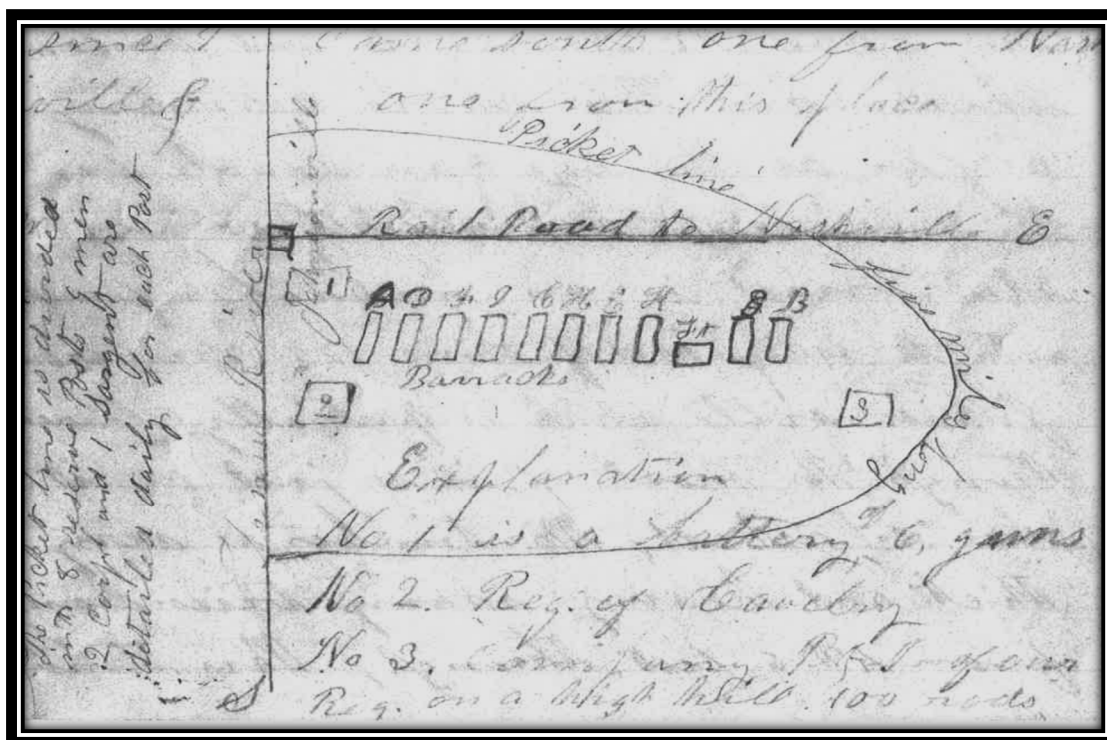 since I came south one from Nash
ville & one from this place
Picket line
Rail Road to Nashville E
five miles long
Tennessee River
1
A D F I C H
Barracks
2
3
B B
Explanation
No 1 is a battery of 6, guns
No 2. Reg. of Cavelry
No 3. Company
Reg. on a high hill 100 rods
S
The picket line is divided
into 8 reserve Posts 9 men
2 Corp and 1 Sargent are
detailed daily for each Post